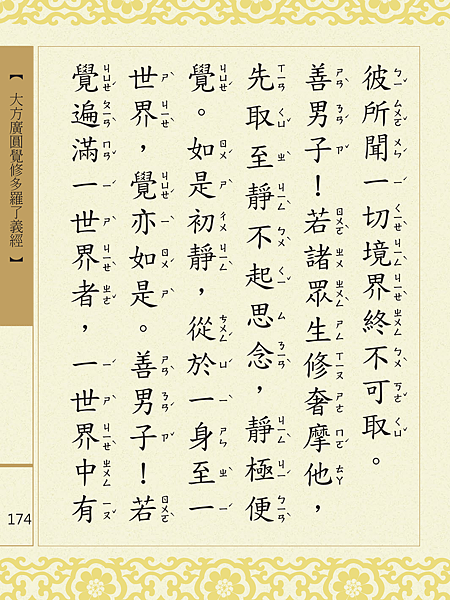 彼所聞一切境界終不可取。
善男子！若諸眾生修奢摩他，
先取至靜不起思念，靜極便
覺。如是初靜，從於一身至一
世界，覺亦如是。善男子！若
覺遍滿一世界者，一世界中有
【大方廣圓覺修多羅了義經】
174